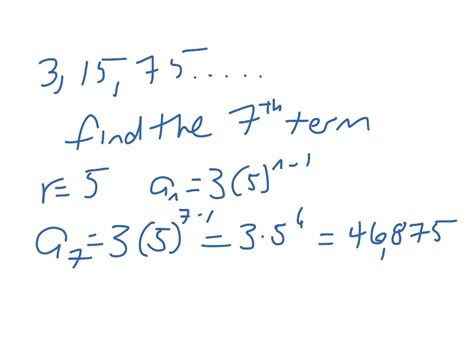 3, 15, 75.....
find the 7th term
r = 5 aₙ = 3(5)ⁿ⁻¹
a₇ = 3(5)⁷⁻¹ = 3·5⁶ = 46,875